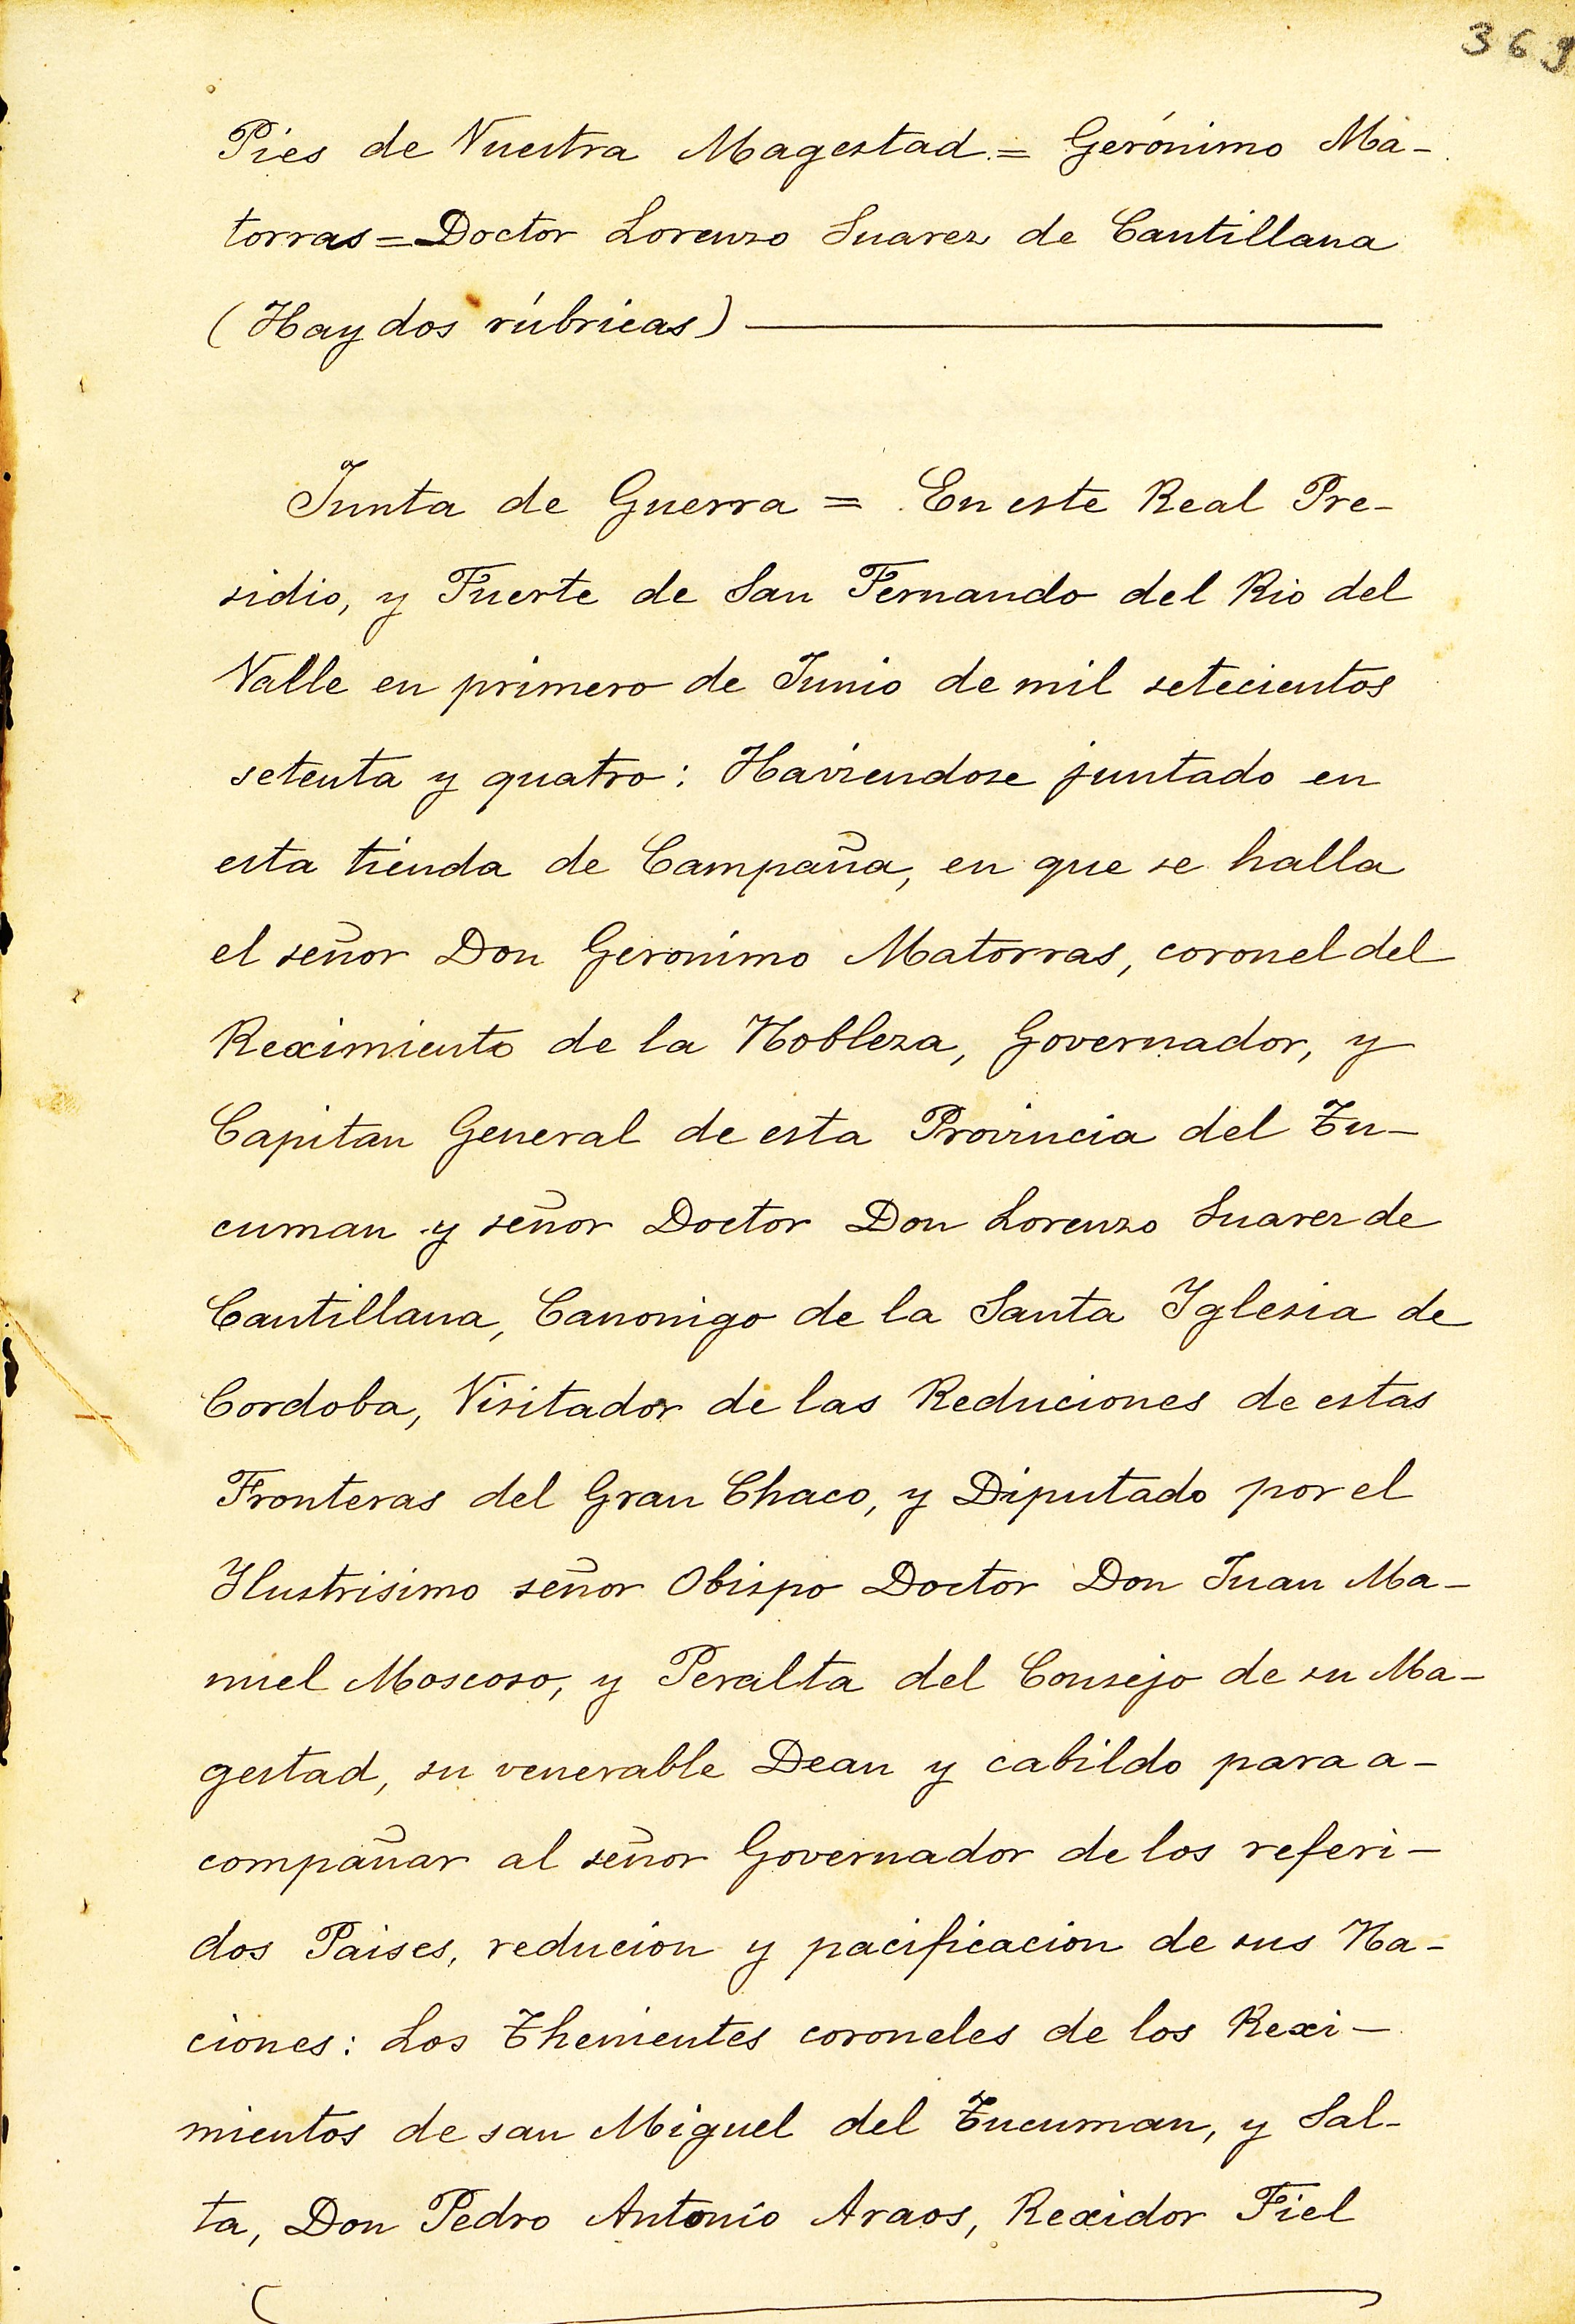 369
Pies de Vuestra Magestad.= Gerónimo Ma-
torras=Doctor Lorenzo Suarez de Cantillana
(Hay dos rúbricas)
Junta de Guerra = En este Real Pre-
sidio, y Fuerte de San Fernando del Rio del
Valle en primero de Junio de mil setecientos
setenta y quatro: Haviendose juntado en
esta tienda de Campaña, en que se halla
el señor Don Geronimo Matorras, coronel del
Reximiento de la Nobleza, Governador, y
Capitan General de esta Provincia del Tu-
cuman y señor Doctor Don Lorenzo Suarez de
Cantillana, Canonigo de la Santa Iglesia de
Cordoba, Visitador de las Reduciones de estas
Fronteras del Gran Chaco, y Diputado por el
Ilustrisimo señor Obispo Doctor Don Juan Ma-
nuel Moscoso, y Peralta del Consejo de su Ma-
gestad, su venerable Dean y cabildo para a-
compañar al señor Governador de los referi-
dos Paises, reducion y pacificacion de sus Na-
ciones: Los Thenientes coroneles de los Rexi-
mientos de san Miguel del Tucuman, y Sal-
ta, Don Pedro Antonio Araos, Rexidor Fiel